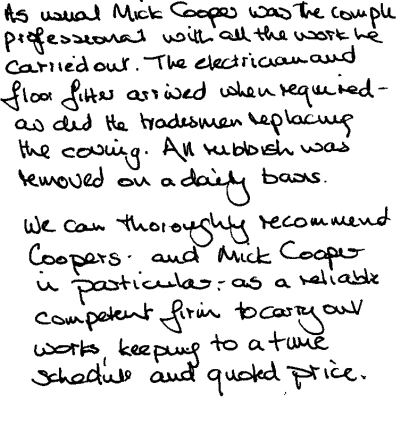 As usual Mick Cooper was the comple
professional with all the work he
carried out. The electrician and
floor fitter arrived when required -
as did the tradesmen replacing
the coving. All rubbish was
removed on a daily basis.
We can thoroughly recommend
Coopers - and Mick Cooper
in particular - as a reliable
competent firm to carry out
works, keeping to a time
schedule and quoted price.